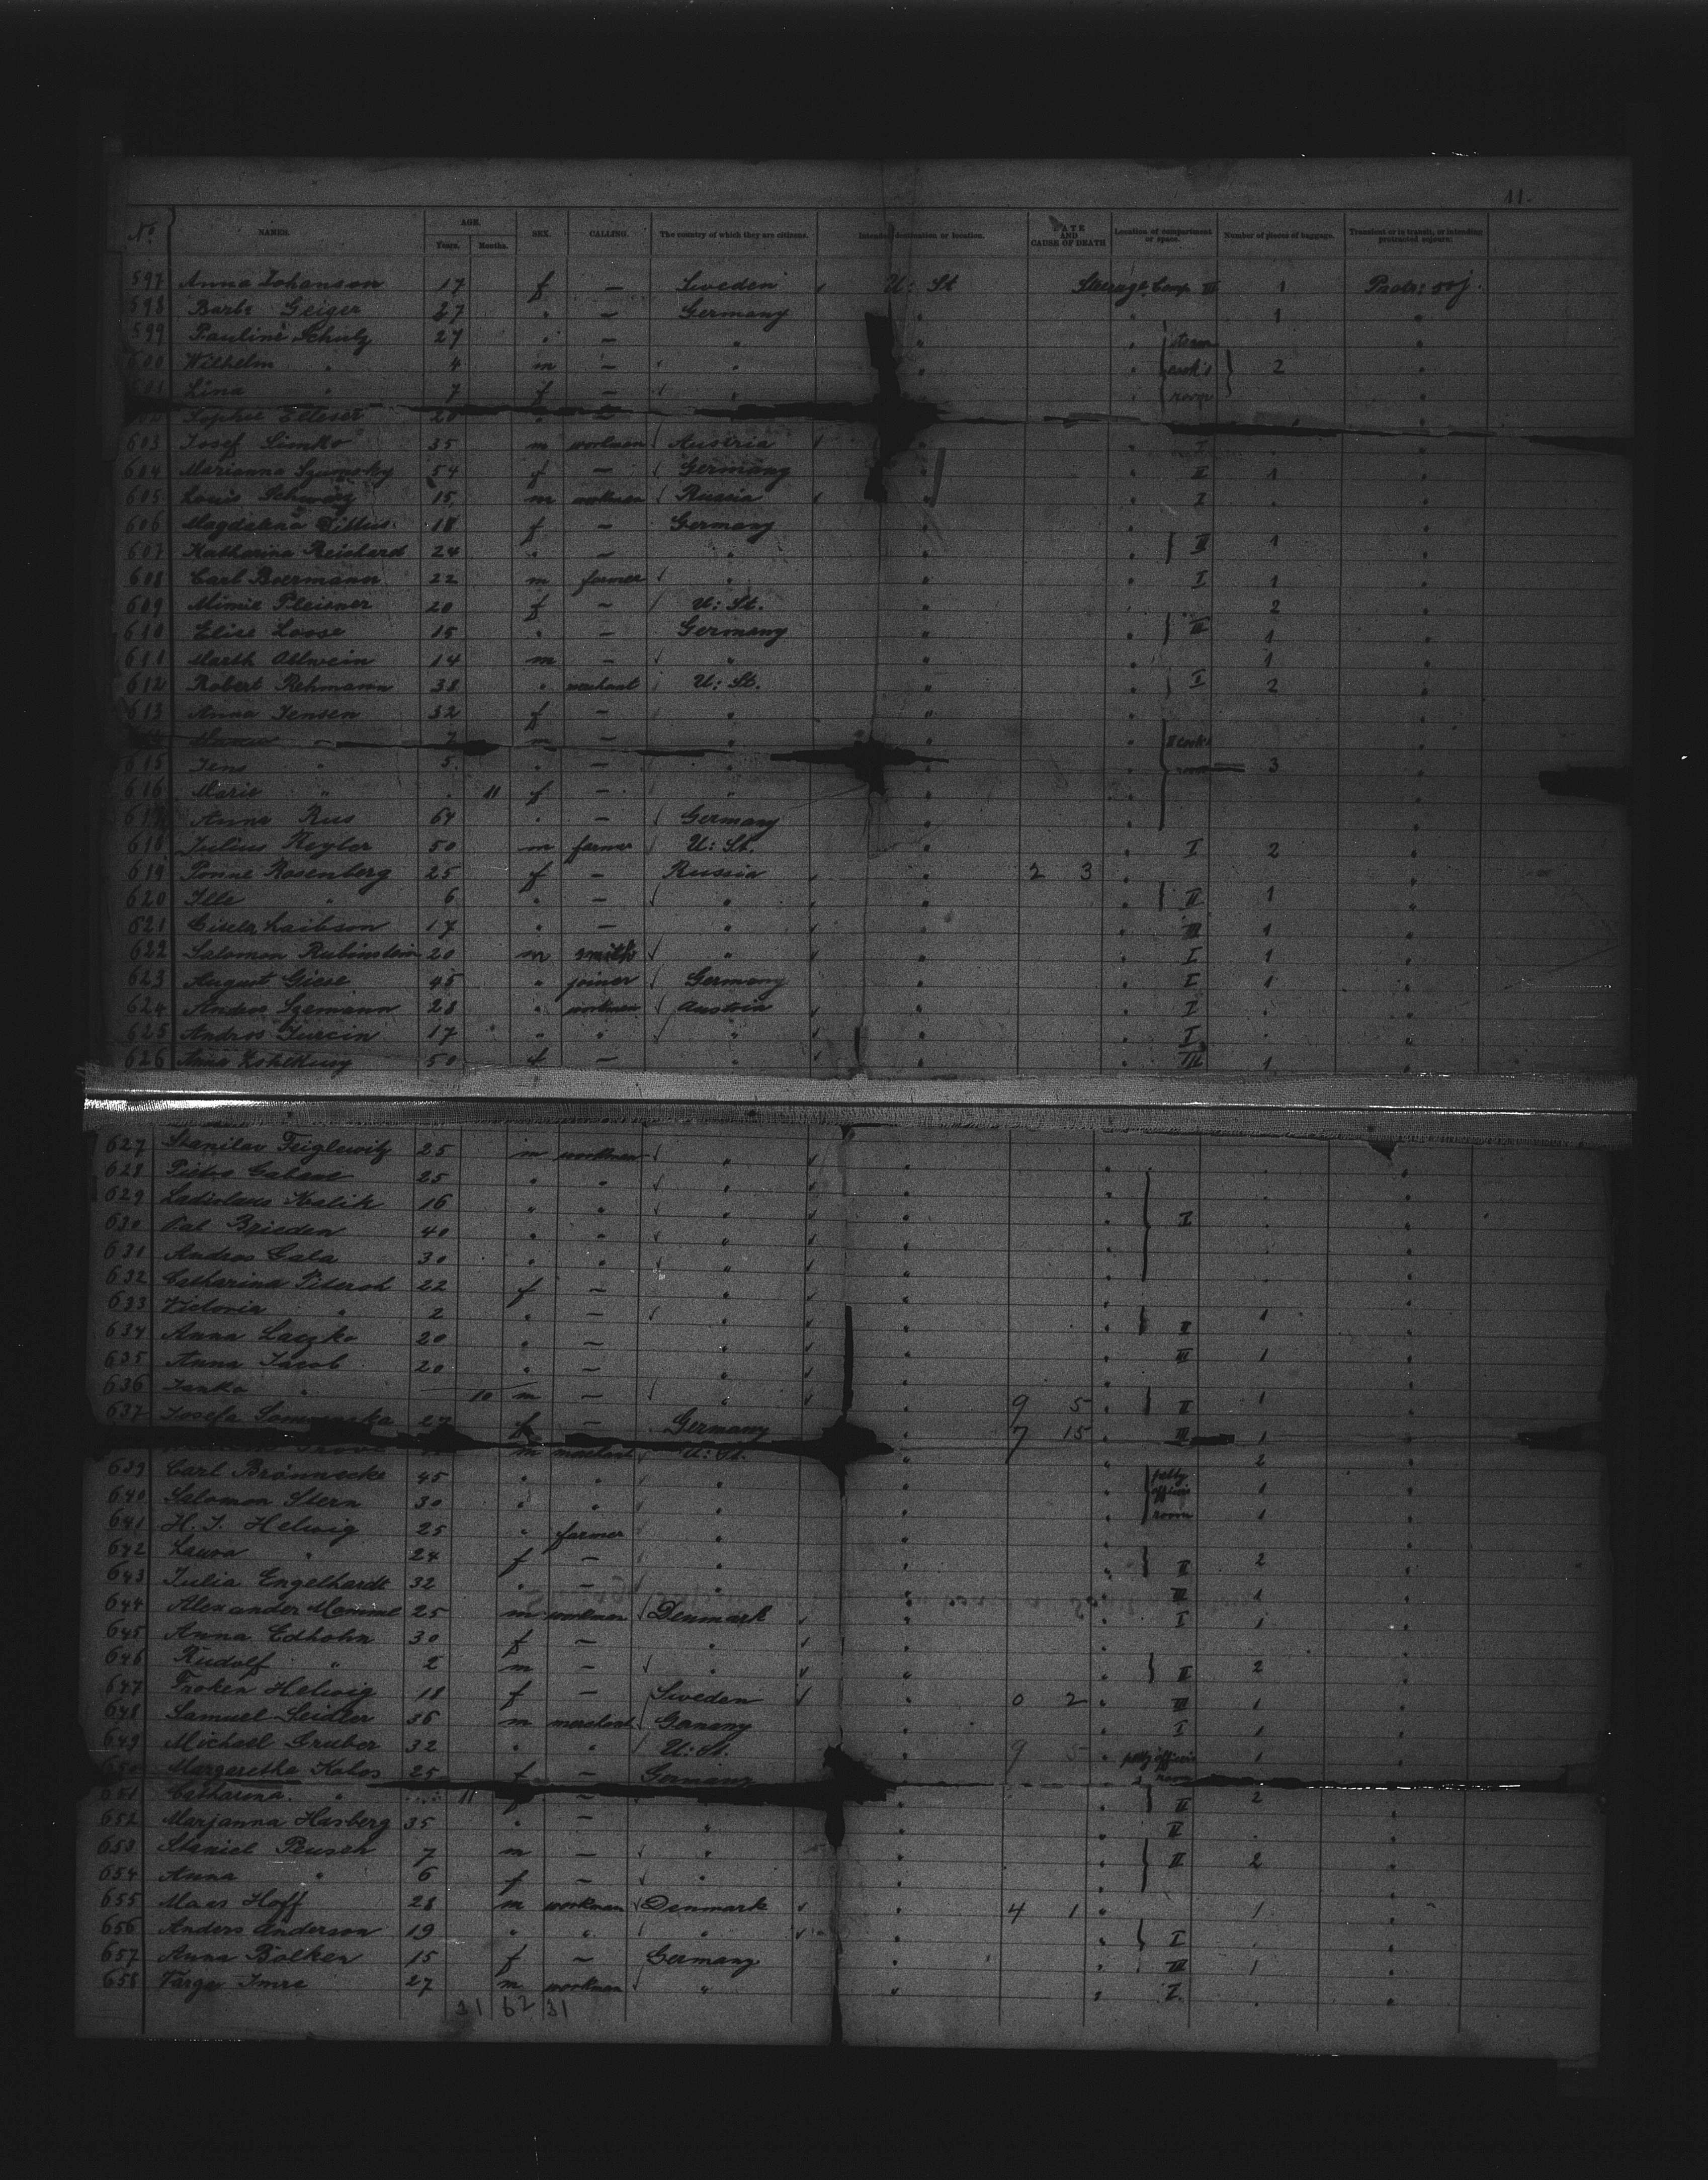 11.
No. NAMES. AGE. Years. Months. SEX. CALLING. The country of which they are citizens. Intended destination or location. DATE AND CAUSE OF DEATH Location of compartment or space. Number of pieces of baggage. Transient or in transit, or intending protracted sojourn.
597 Anna Johanson 17 f — Sweden U: St Steerage Comp. II 1 Protr: soj.
598 Barb: Geiger 27 " — Germany " " 1 "
599 Pauline Schulz 27 " — " " "
600 Wilhelm " 4 m — " " " 2 "
601 Lina " 7 f — " " " room "
Sophie 20
603 Josef Simko 35 m workman Austria " " I "
604 Marianna Szumsky 54 f — Germany " " II 1 "
605 Louis Schwarz 15 m workman Russia " " I "
606 Magdalena 18 f — Germany "
607 Katharina Reichard 24 " — " " " II 1 "
608 Carl Boermann 22 m farmer " " " I 1 "
609 Mimie Pleisner 20 f — U: St. " 2
610 Elise Loose 15 " — Germany " " II 1 "
611 Marth Allwein 14 m — " " " 1
612 Robert Rehmann 38 " merchant U: St. " " I 2 "
613 Anna Jensen 32 f — " " "
7 m — " " " II cook's
615 Jens " 5 " — " " " room 3 "
616 Marie " 11 f — " " "
617 Anna Rus 64 " — Germany " " "
618 Julius Heyler 50 m farmer U: St. " " I 2 "
619 Ponne Rosenberg 25 f — Russia 2 3 " "
620 Ille " 6 " — " " " II 1 "
621 Gisela Laibson 17 " — " " III 1 "
622 Salomon Rubinstein 20 m smith " " " I 1 "
623 August Giese 45 " joiner Germany " " I 1 "
624 Andros Szemann 28 " workman Austria " " I "
625 Andros Jurcin 17 " " " " " I . "
626 Anna 50 f — " " " III 1 "
627 Stanilav Triglewitz 25 m workman " " "
628 Pietro 25 " " " " " "
629 Ladislaus Kralik 16 " " " " " . "
630 Pal Brieden 40 " " " " " I "
631 Andros Gala 30 " " " " " "
632 Catharina Pitersch 22 f — " " "
633 Victoria " 2 " — " " " II 1 "
634 Anna Laczko 20 " — " " " III 1 "
635 Anna Jacob 20 " — " " "
636 Janko " — 10 m — " 9 5 " II 1 "
637 Josefa 27 f — Germany " 7 15 III 1 "
m merchant U: St. " " 2 "
639 Carl Brönnecke 45 " " " " " petty 1 "
640 Salomon Stern 30 " " " " " room 1 "
641 H. J. Helwig 25 " farmer " "
642 Laura " 24 f — " " " II 2 "
643 Julia Engelhardt 32 " — " " " III 1 "
644 Alexander Momme 25 m workman Denmark " " I 1 "
645 Anna Edholm 30 f — " " "
646 Rudolf " 2 m — " " " II 2 "
647 Froken Helwig 18 f — Sweden " 0 2 " III 1 "
648 Samuel Seidler 36 m merchant Germany " " I 1 "
649 Michael Gruber 32 " " U: St. 9 5 " petty officers 1 "
650 Margaretha Kobos 25 f — Germany room
651 Catharina " 11 f — " " II 2 "
652 Marjanna Hasberg 35 " — " " " II . "
653 Peusch 7 m — " " " II 2 "
654 Anna " 6 f — " " "
655 Maas Hoff 28 m workman Denmark " 4 1 " 1 "
656 Anders Anderson 19 " " " " " I . "
657 Anna Bölken 15 f — Germany " " III 1 "
658 Varga Imre 27 m workman " " " I . "
31 62 31